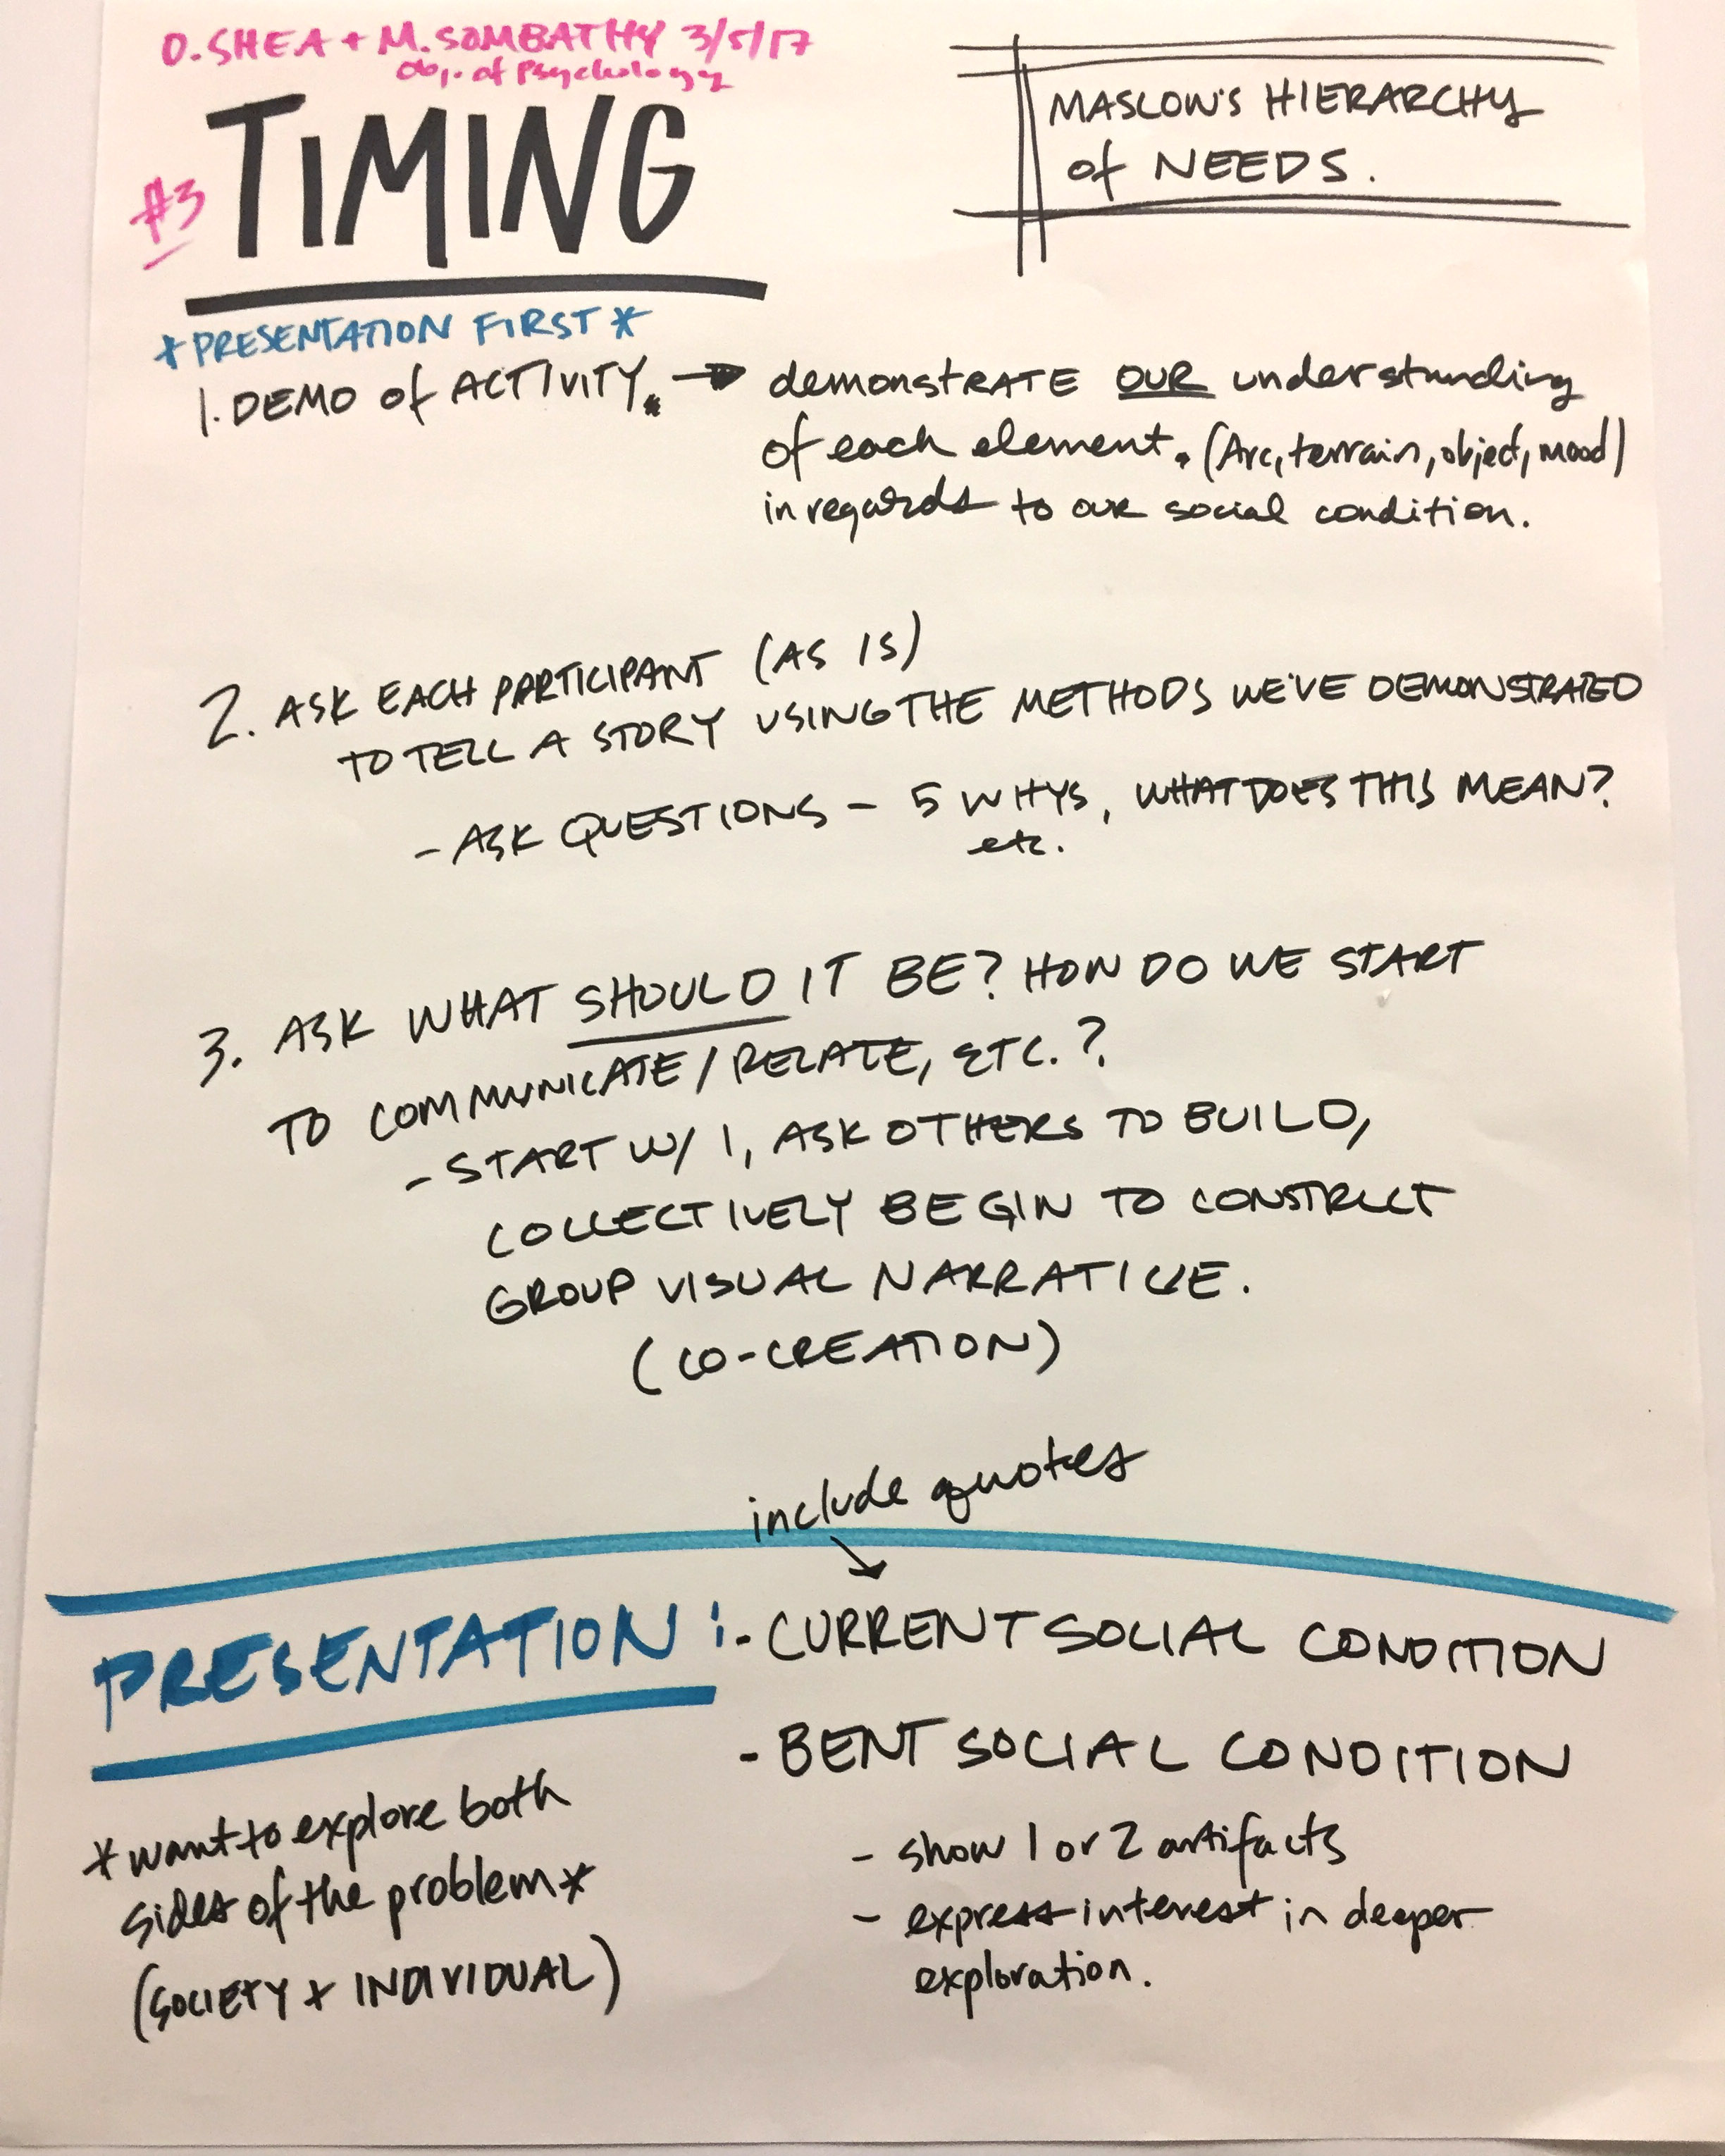 O. SHEA + M. SOMBATHY 3/5/17
Obj. of Psychology
#3 TIMING
MASLOW'S HIERARCHY
of NEEDS.
*PRESENTATION FIRST*
1. DEMO of ACTIVITY. → demonstrate OUR understanding
of each element. (Arc, terrain, object, mood)
in regards to our social condition.
2. ASK EACH PARTICIPANT (AS IS)
TO TELL A STORY USING THE METHODS WE'VE DEMONSTRATED
- ASK QUESTIONS - 5 WHYS, WHAT DOES THIS MEAN?
etc.
3. ASK WHAT SHOULD IT BE? HOW DO WE START
TO COMMUNICATE/RELATE, ETC.?
- START W/ 1, ASK OTHERS TO BUILD,
COLLECTIVELY BEGIN TO CONSTRUCT
GROUP VISUAL NARRATIVE.
(CO-CREATION)
include quotes
PRESENTATION: - CURRENT SOCIAL CONDITION
- BENT SOCIAL CONDITION
- show 1 or 2 artifacts
- express interest in deeper
exploration.
*want to explore both
sides of the problem*
(SOCIETY + INDIVIDUAL)